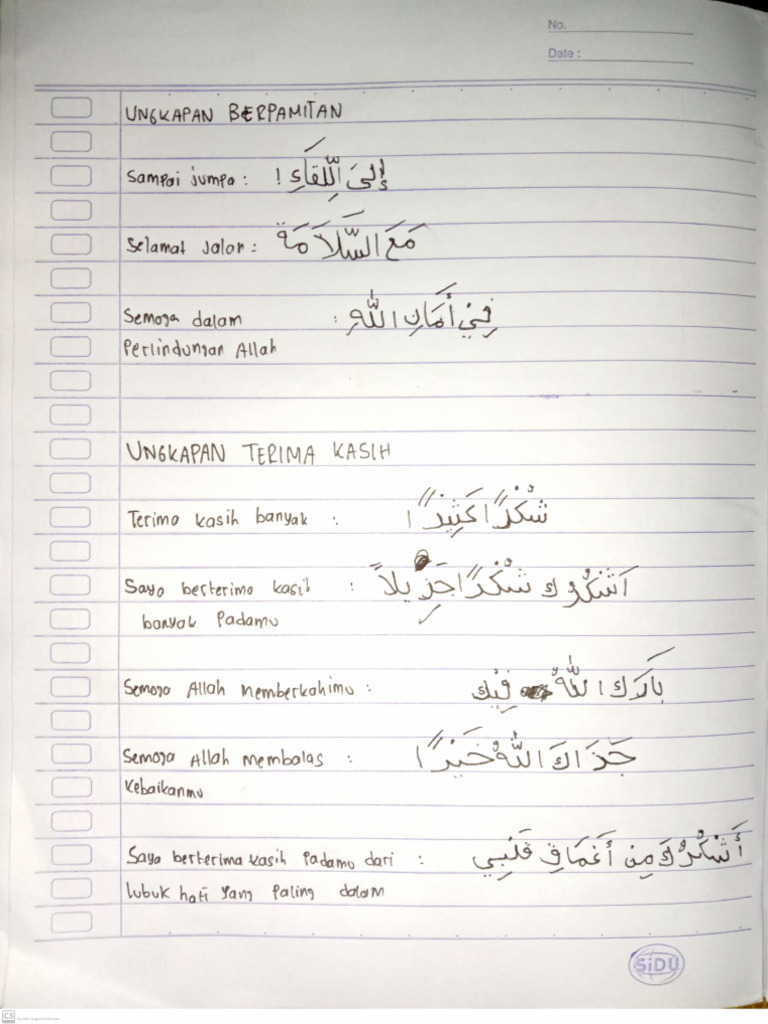 No.
Date :
UNGKAPAN BERPAMITAN
Sampai jumpa : إِلىَ اللِّقَاءِ !
Selamat Jalan : مَعَ السَّلَامَة
Semoga dalam : فِيْ أَمَانِ اللّٰهِ
Perlindungan Allah
UNGKAPAN TERIMA KASIH
Terima kasih banyak : شُكْرًا كَثِيْرًا
Saya berterima kasih : اَشْكُرُك شُكْرًا جَزِيلاً
banyak Padamu
Semoga Allah memberkahimu : بَارَك اللّٰهُ فِيْك
Semoga Allah membalas : جَزَاكَ اللّٰهُ خَيْرًا
kebaikanmu
Saya berterima kasih Padamu dari : أَشْكُرُكَ مِنْ أَعْمَاقِ قَلْبِي
lubuk hati yang Paling dalam
SiDU
CS